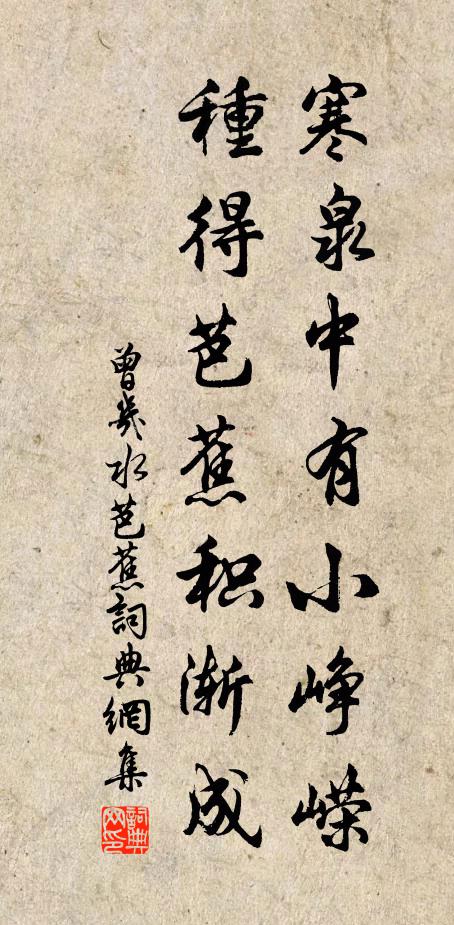 寒泉中有小峥嵘
種得芭蕉积渐成
曾幾水芭蕉詞典網集
詞典网印